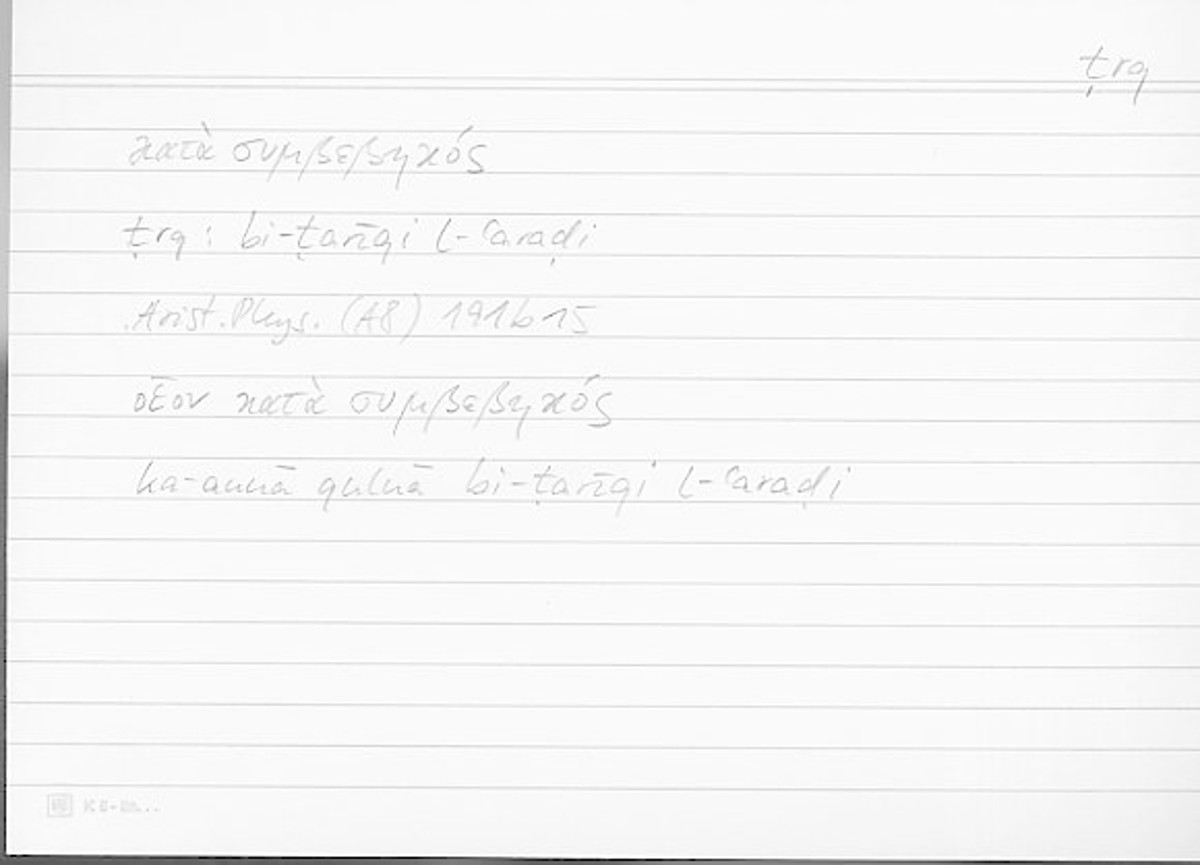 ṭrq
κατὰ συμβεβηκός
ṭrq: bi-ṭarīqi l-ʿaraḍi
Arist. Phys. (A8) 191b15
οἷον κατὰ συμβεβηκός
ka-annā qulnā bi-ṭarīqi l-ʿaraḍi